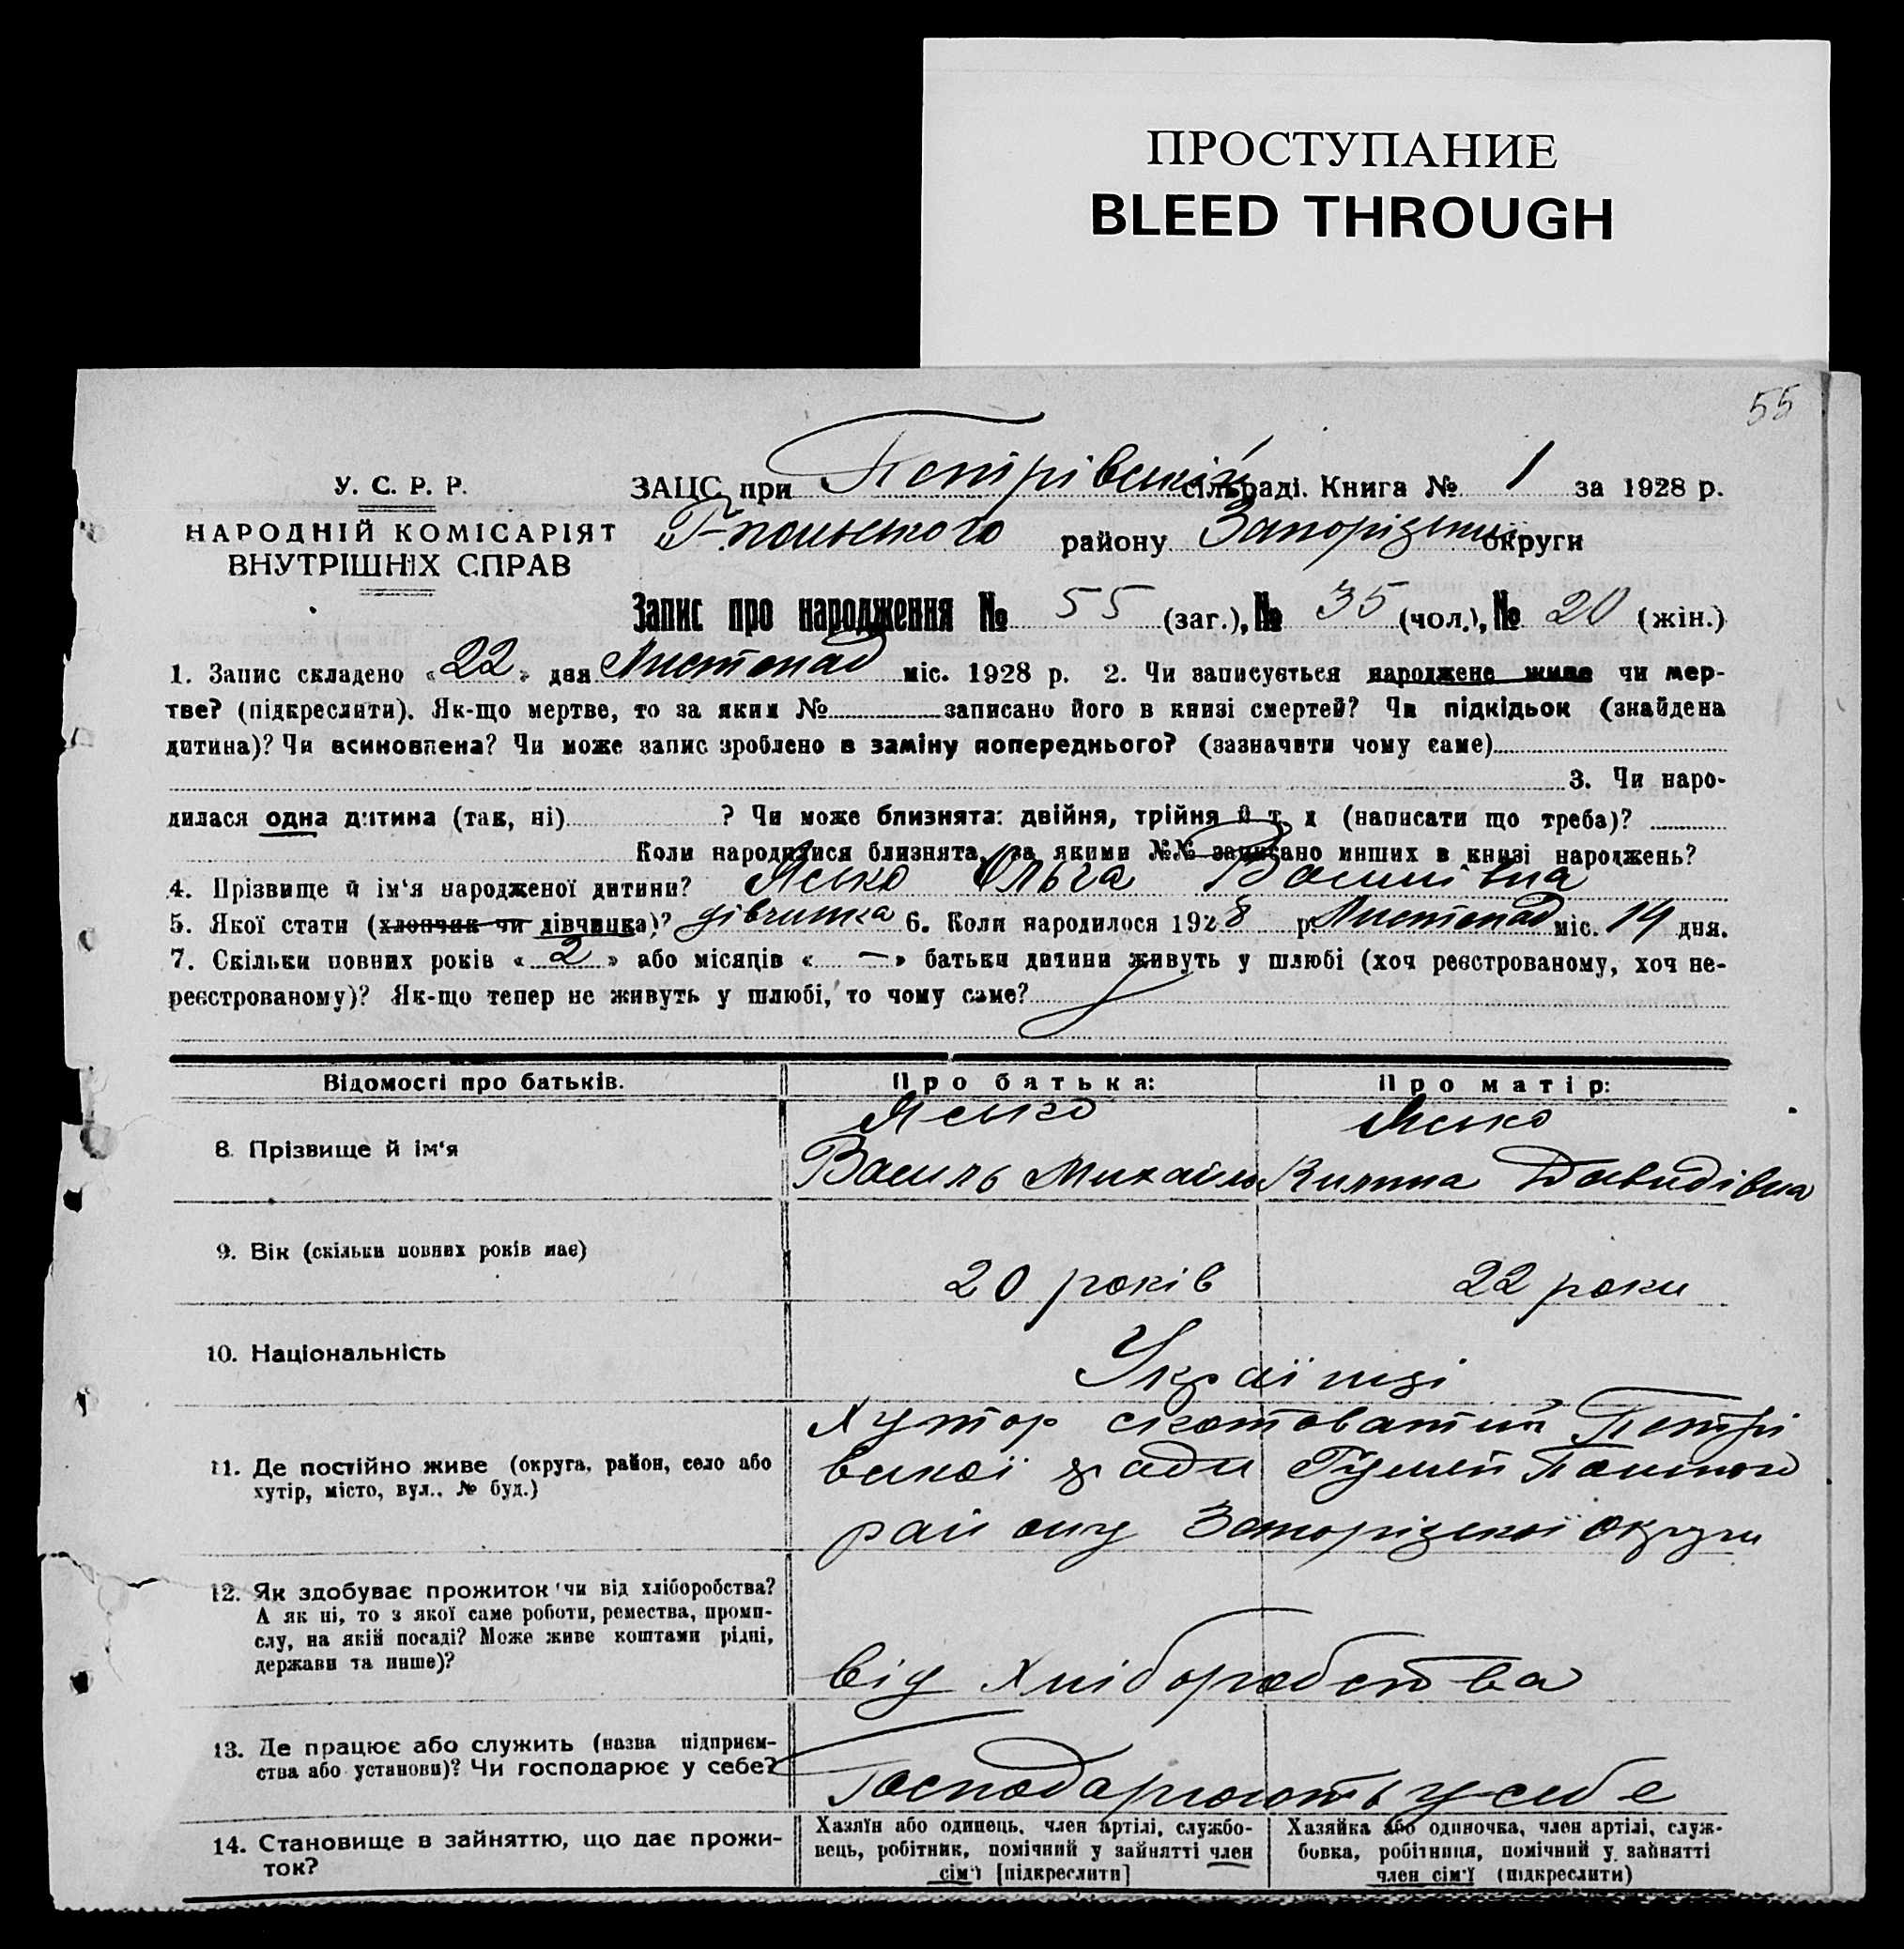 ПРОСТУПАНИЕ
BLEED THROUGH
55
У. С. Р. Р.
НАРОДНІЙ КОМІСАРІЯТ
ВНУТРІШНІХ СПРАВ
ЗАЦС при Петрівській сільраді. Книга № 1 за 1928 р.
Г-польського району Запорізької округи
Запис про народження № 55 (заг.), № 35 (чол.), № 20 (жін.)
1. Запис складено «22» дня Листопад міс. 1928 р. 2. Чи записується народжене живе чи мер-
тве? (підкреслити). Як-що мертве, то за яким № записано його в книзі смертей? Чи підкідьок (знайдена
дитина)? Чи всиновлена? Чи може запис зроблено в заміну попереднього? (зазначити чому саме)
3. Чи наро-
дилася одна дитина (так, ні) ? Чи може близнята: двійня, трійня й т. д (написати що треба)?
Коли народилися близнята, за якими №№ записано инших в книзі народжень?
4. Прізвище й ім'я народженої дитини? Ясько Ольга Василівна
5. Якої стати (хлопчик чи дівчинка)? дівчинка 6. Коли народилося 1928 р. Листопад міс. 14 дня.
7. Скільки повних років «2» або місяців «—» батьки дитини живуть у шлюбі (хоч реєстрованому, хоч не-
реєстрованому)? Як-що тепер не живуть у шлюбі, то чому саме?
Відомості про батьків. Про батька: Про матір:
8. Прізвище й ім'я
Ясько
Василь Михайло
Ясько
Килина Давидівна
9. Вік (скільки повних років має)
20 років 22 роки
10. Національність
Українці
11. Де постійно живе (округа, район, село або
хутір, місто, вул., № буд.)
Хутор скотоватий Петрі
вської ради Гуляй
району Запорізської округи
12. Як здобуває прожиток чи від хліборобства?
А як ні, то з якої саме роботи, ремества, проми-
слу, на якій посаді? Може живе коштами рідні,
держави та инше)?
від Хліборобства
13. Де працює або служить (назва підприєм-
ства або установи)? Чи господарює у себе?
Господарюють у себе
14. Становище в зайняттю, що дає прожи-
ток?
Хазяїн або одинець, член артілі, службо-
вець, робітник, помічний у зайнятті член
сім'ї [підкреслити]
Хазяйка або одиночка, член артілі, служ-
бовка, робітниця, помічний у зайнятті
член сім'ї (підкреслити)